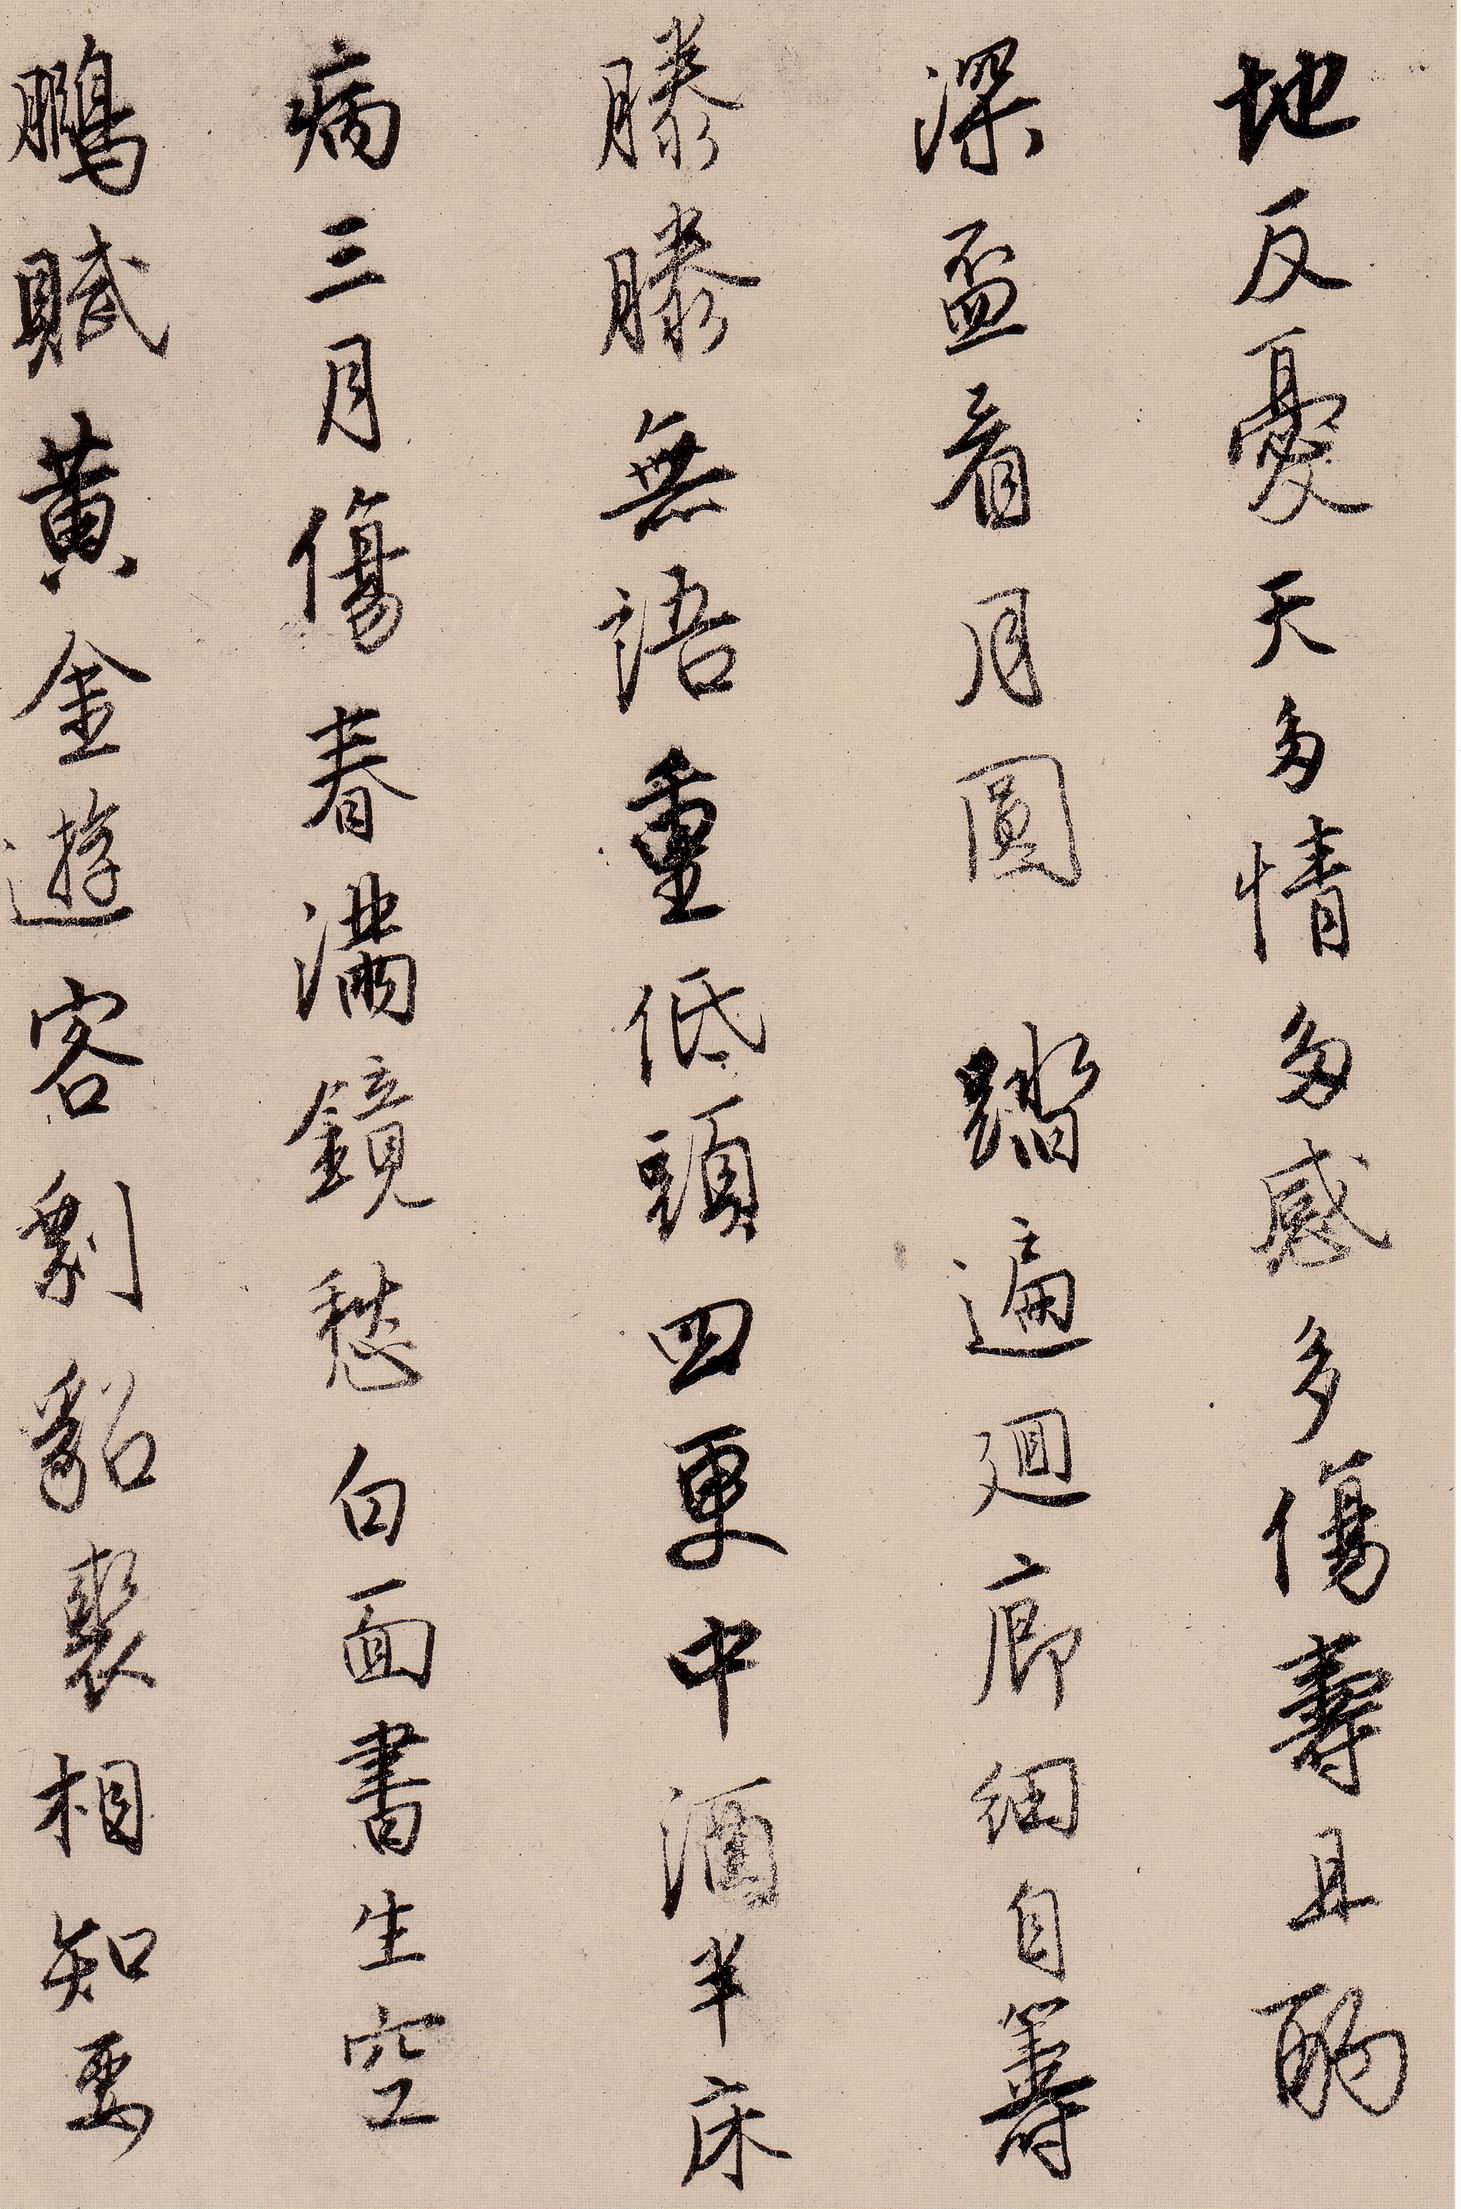 地反憂天多情多感多傷壽且酌
深盃看月圓踏遍迴廊細自籌
滕滕無語重低頭四更中酒半床
病三月傷春滿鏡愁白面書生空
鵩賦黃金遊客剩貂裘相知要